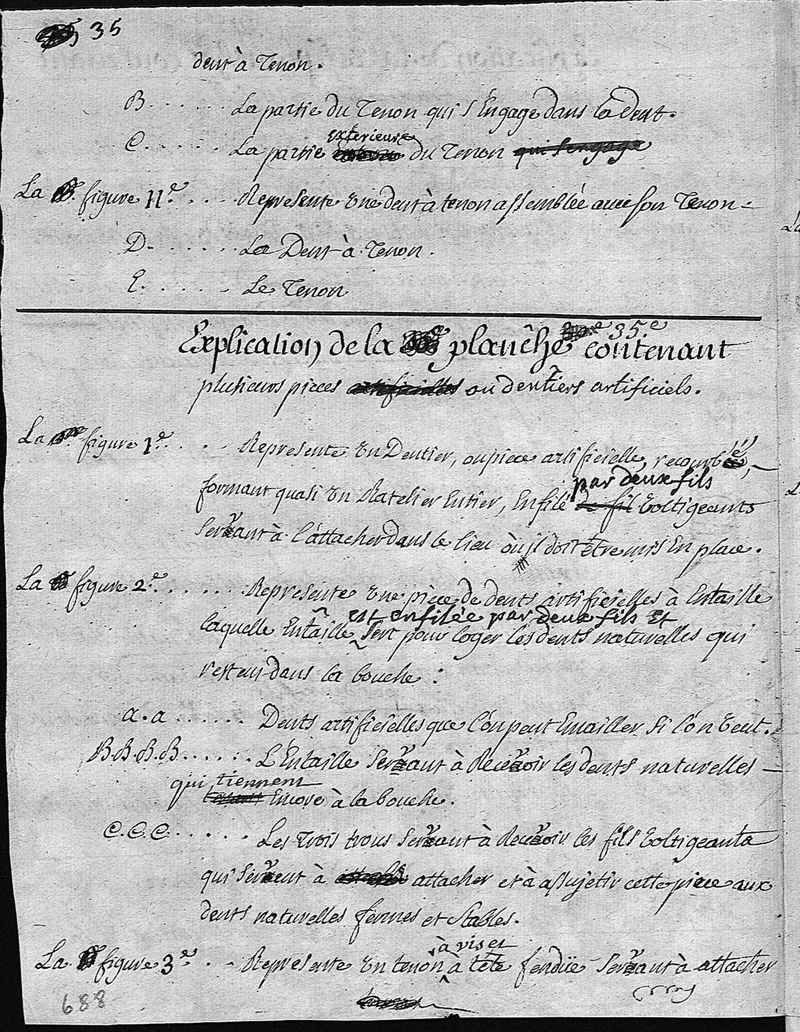 35
dent à Tenon.
B ...... La partie du Tenon qui s'Engage dans la Dent.
exterieure
C ...... La partie du Tenon qui s'engage
La figure 11e .... Represente Une dent à tenon assemblée avec son Tenon -
D ...... La Dent à Tenon.
E ...... Le Tenon
35e
Explication de la planche contenant
plusieurs pieces artificielles ou dentiers artificiels.
La figure 1e .... Represente Un Dentier, ou piece artificielle, recourbée,
par deux fils
formant quasi Un Ratelier Entier, Enfilé de fil Voltigeants
Servant à l'attacher dans le lieu où il doit être mis En place.
La figure 2e ...... Represente Une pièce de dents artificielles à Entaille
est enfilée par deux fils Et
laquelle Entaille, Sert pour loger les dents naturelles qui
restent dans la bouche :
a. a ...... Dents artificielles que l'on peut Emailler Si l'on Veut.
B. B. B. B ...... L'Entaille Servant à Recevoir les dents naturelles -
tiennent
qui Encore à la bouche.
C. C. C ...... Les Trois trous Servant à Recevoir les fils Voltigeants
qui Servent à attacher et à assujetir cette piece aux
dents naturelles fermes et Stables.
à viset
La figure 3e .... Represente Un tenon à tête fendüe Servant à attacher
688